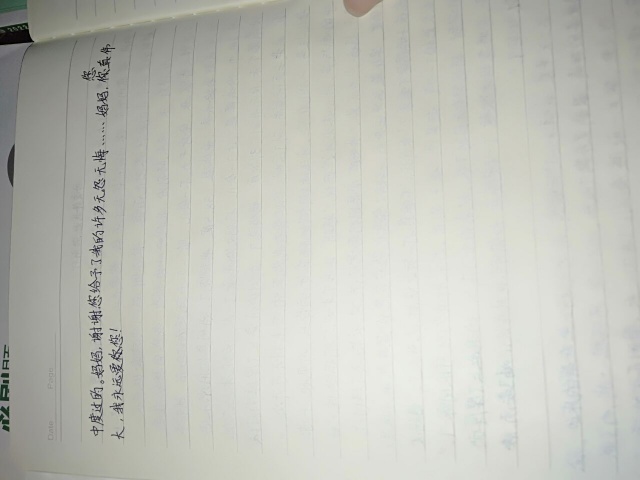 Date Page
中度过的。妈妈,谢谢您给予了我的许多无怨无悔……妈妈,您真伟
大,我永远爱您!